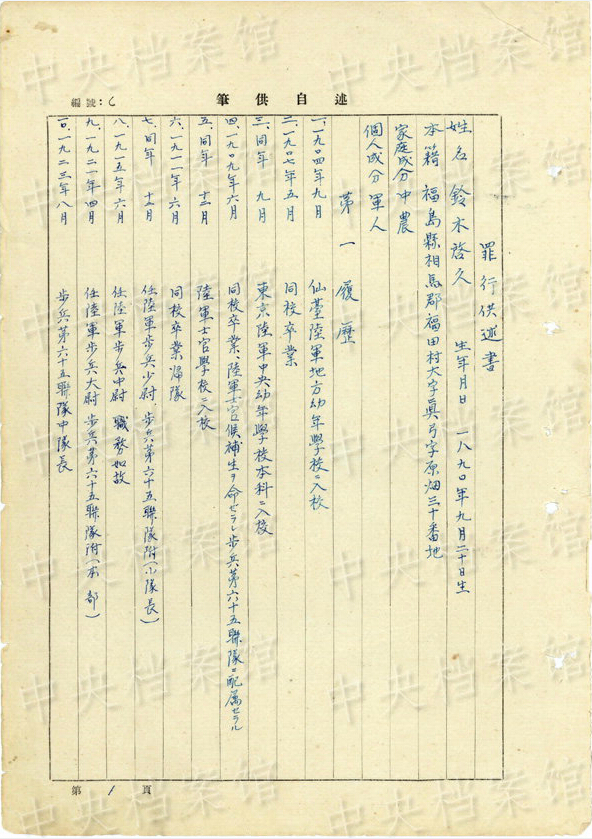 述自供筆
編號:6
罪行供述書
姓名 鈴木啓久 生年月日 一八九〇年九月二十日生
本籍 福島縣相馬郡福田村大字眞弓字原畑三十番地
家庭成分 中農
個人成分 軍人
第一 履歷
一、一九〇四年九月 仙臺陸軍地方幼年學校ニ入校
二、一九〇七年五月 同校卒業
三、同年 九月 東京陸軍中央幼年學校本科ニ入校
四、一九〇九年六月 同校卒業、陸軍士官候補生ヲ命ゼラレ步兵第六十五聯隊ニ配属セラル
五、同年 十二月 陸軍士官學校ニ入校
六、一九一一年六月 同校卒業帰隊
七、同年 十二月 任陸軍步兵少尉 步兵第六十五聯隊附(小隊長)
八、一九一五年六月 任陸軍步兵中尉 職務如故
九、一九二一年四月 任陸軍步兵大尉 步兵第六十五聯隊附(本部)
一〇、一九二三年八月 步兵第六十五聯隊中隊長
第 1 頁
中央档案馆